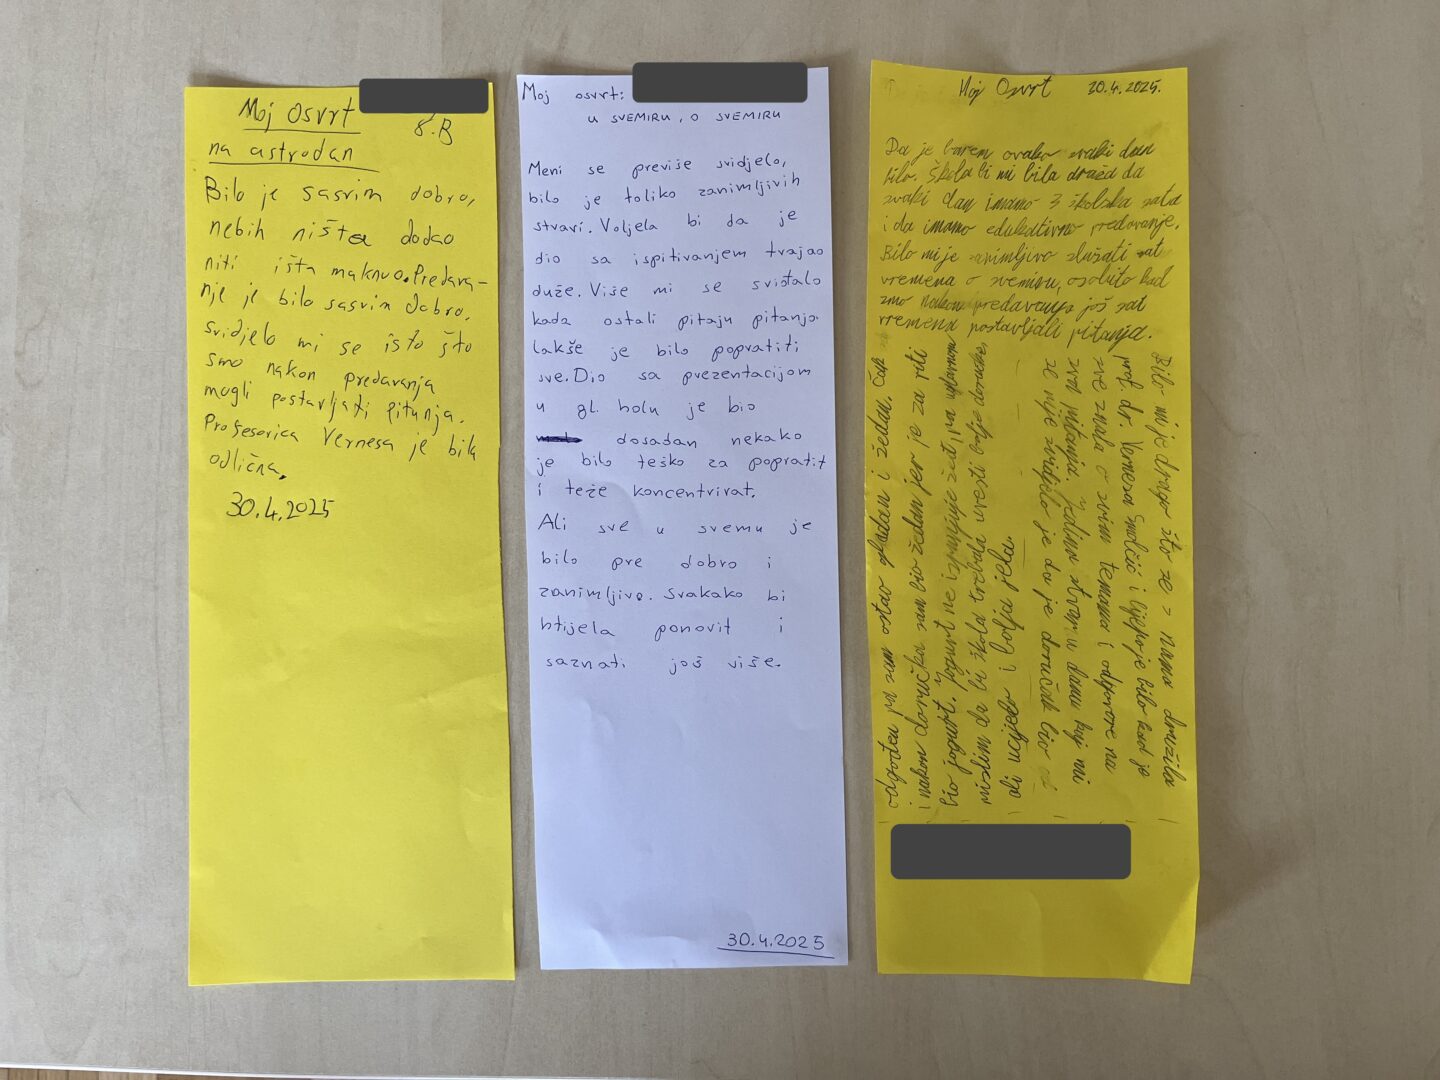 Moj Osvrt
8.B
na astrodan
Bilo je sasvim dobro,
nebih ništa dodao
niti išta maknuo. Predava-
nje je bilo sasvim dobro,
svidjelo mi se isto što
smo nakon predavanja
mogli postavljati pitanja.
Profesorica Vernesa je bila
odlična.
30.4.2025
Moj osvrt:
U SVEMIRU, O SVEMIRU
Meni se previše svidjelo,
bilo je toliko zanimljivih
stvari. Voljela bi da je
dio sa ispitivanjem trajao
duže. Više mi se svidtalo
kada ostali pitaju pitanja.
lakše je bilo popratiti
sve. Dio sa prezentacijom
u gl. holu je bio
dosadan nekako
je bilo teško za popratit
i teže koncentrirat.
Ali sve u svemu je
bilo pre dobro i
zanimljivo. Svakako bi
htijela ponovit i
saznati još više.
30.4.2025
Moj Osvrt 30.4.2025.
Da je barem ovako svaki dan
bilo. Škola bi mi bila draža da
svaki dan imamo 3 školska sata
i da imamo edukativno predavanje.
Bilo mi je zanimljivo slušati sat
vremena o svemiru, osobito kad
smo nakon predavanja još sat
vremena postavljali pitanja.
Bilo mi je drago što se s nama družila
prof. dr. Vernesa Smolčić i lijepo je bilo kad je
sve znala o svim temama i odgovore na
sva pitanja. Jedina stvar u danu koji mi
se nije svidjela je da je doručak bio
odgođen pa sam ostao gladan i žedan. Čak
i nakon doručka sam bio žedan jer je za piti
bio jogurt. Jogurt ne ispunjuje žeđ, pa uglavnom
mislim da bi škola trebala uvesti bolje doručke,
ali ucijelo i bolja jela.